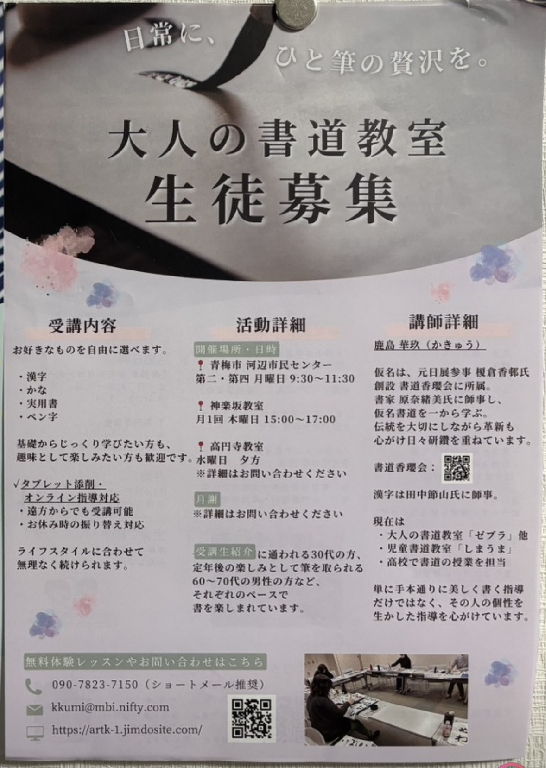 日常に、
ひと筆の贅沢を。
大人の書道教室
生徒募集
受講内容
お好きなものを自由に選べます。
・漢字
・かな
・実用書
・ペン字
基礎からじっくり学びたい方も、
趣味として楽しみたい方も歓迎です。
√タブレット添削・
オンライン指導対応
・遠方からでも受講可能
・お休み時の振り替え対応
ライフスタイルに合わせて
無理なく続けられます。
活動詳細
開催場所・日時
青梅市 河辺市民センター
第二・第四 月曜日 9:30〜11:30
神楽坂教室
月1回 木曜日 15:00〜17:00
高円寺教室
水曜日 夕方
※詳細はお問い合わせください
月謝
※詳細はお問い合わせください
受講生紹介 に通われる30代の方、
定年後の楽しみとして筆を取られる
60〜70代の男性の方など、
それぞれのペースで
書を楽しまれています。
講師詳細
鹿島 華玖（かきゅう）
仮名は、元日展参事 榎倉香邨氏
創設 書道香瓔会に所属。
書家 原奈緒美氏に師事し、
仮名書道を一から学ぶ。
伝統を大切にしながら革新も
心がけ日々研鑽を重ねています。
書道香瓔会：
漢字は田中節山氏に師事。
現在は
・大人の書道教室「ゼブラ」他
・児童書道教室「しまうま」
・高校で書道の授業を担当
単に手本通りに美しく書く指導
だけではなく、その人の個性を
生かした指導を心がけています。
無料体験レッスンやお問い合わせはこちら
090-7823-7150（ショートメール推奨）
kkumi@mbi.nifty.com
https://artk-1.jimdosite.com/